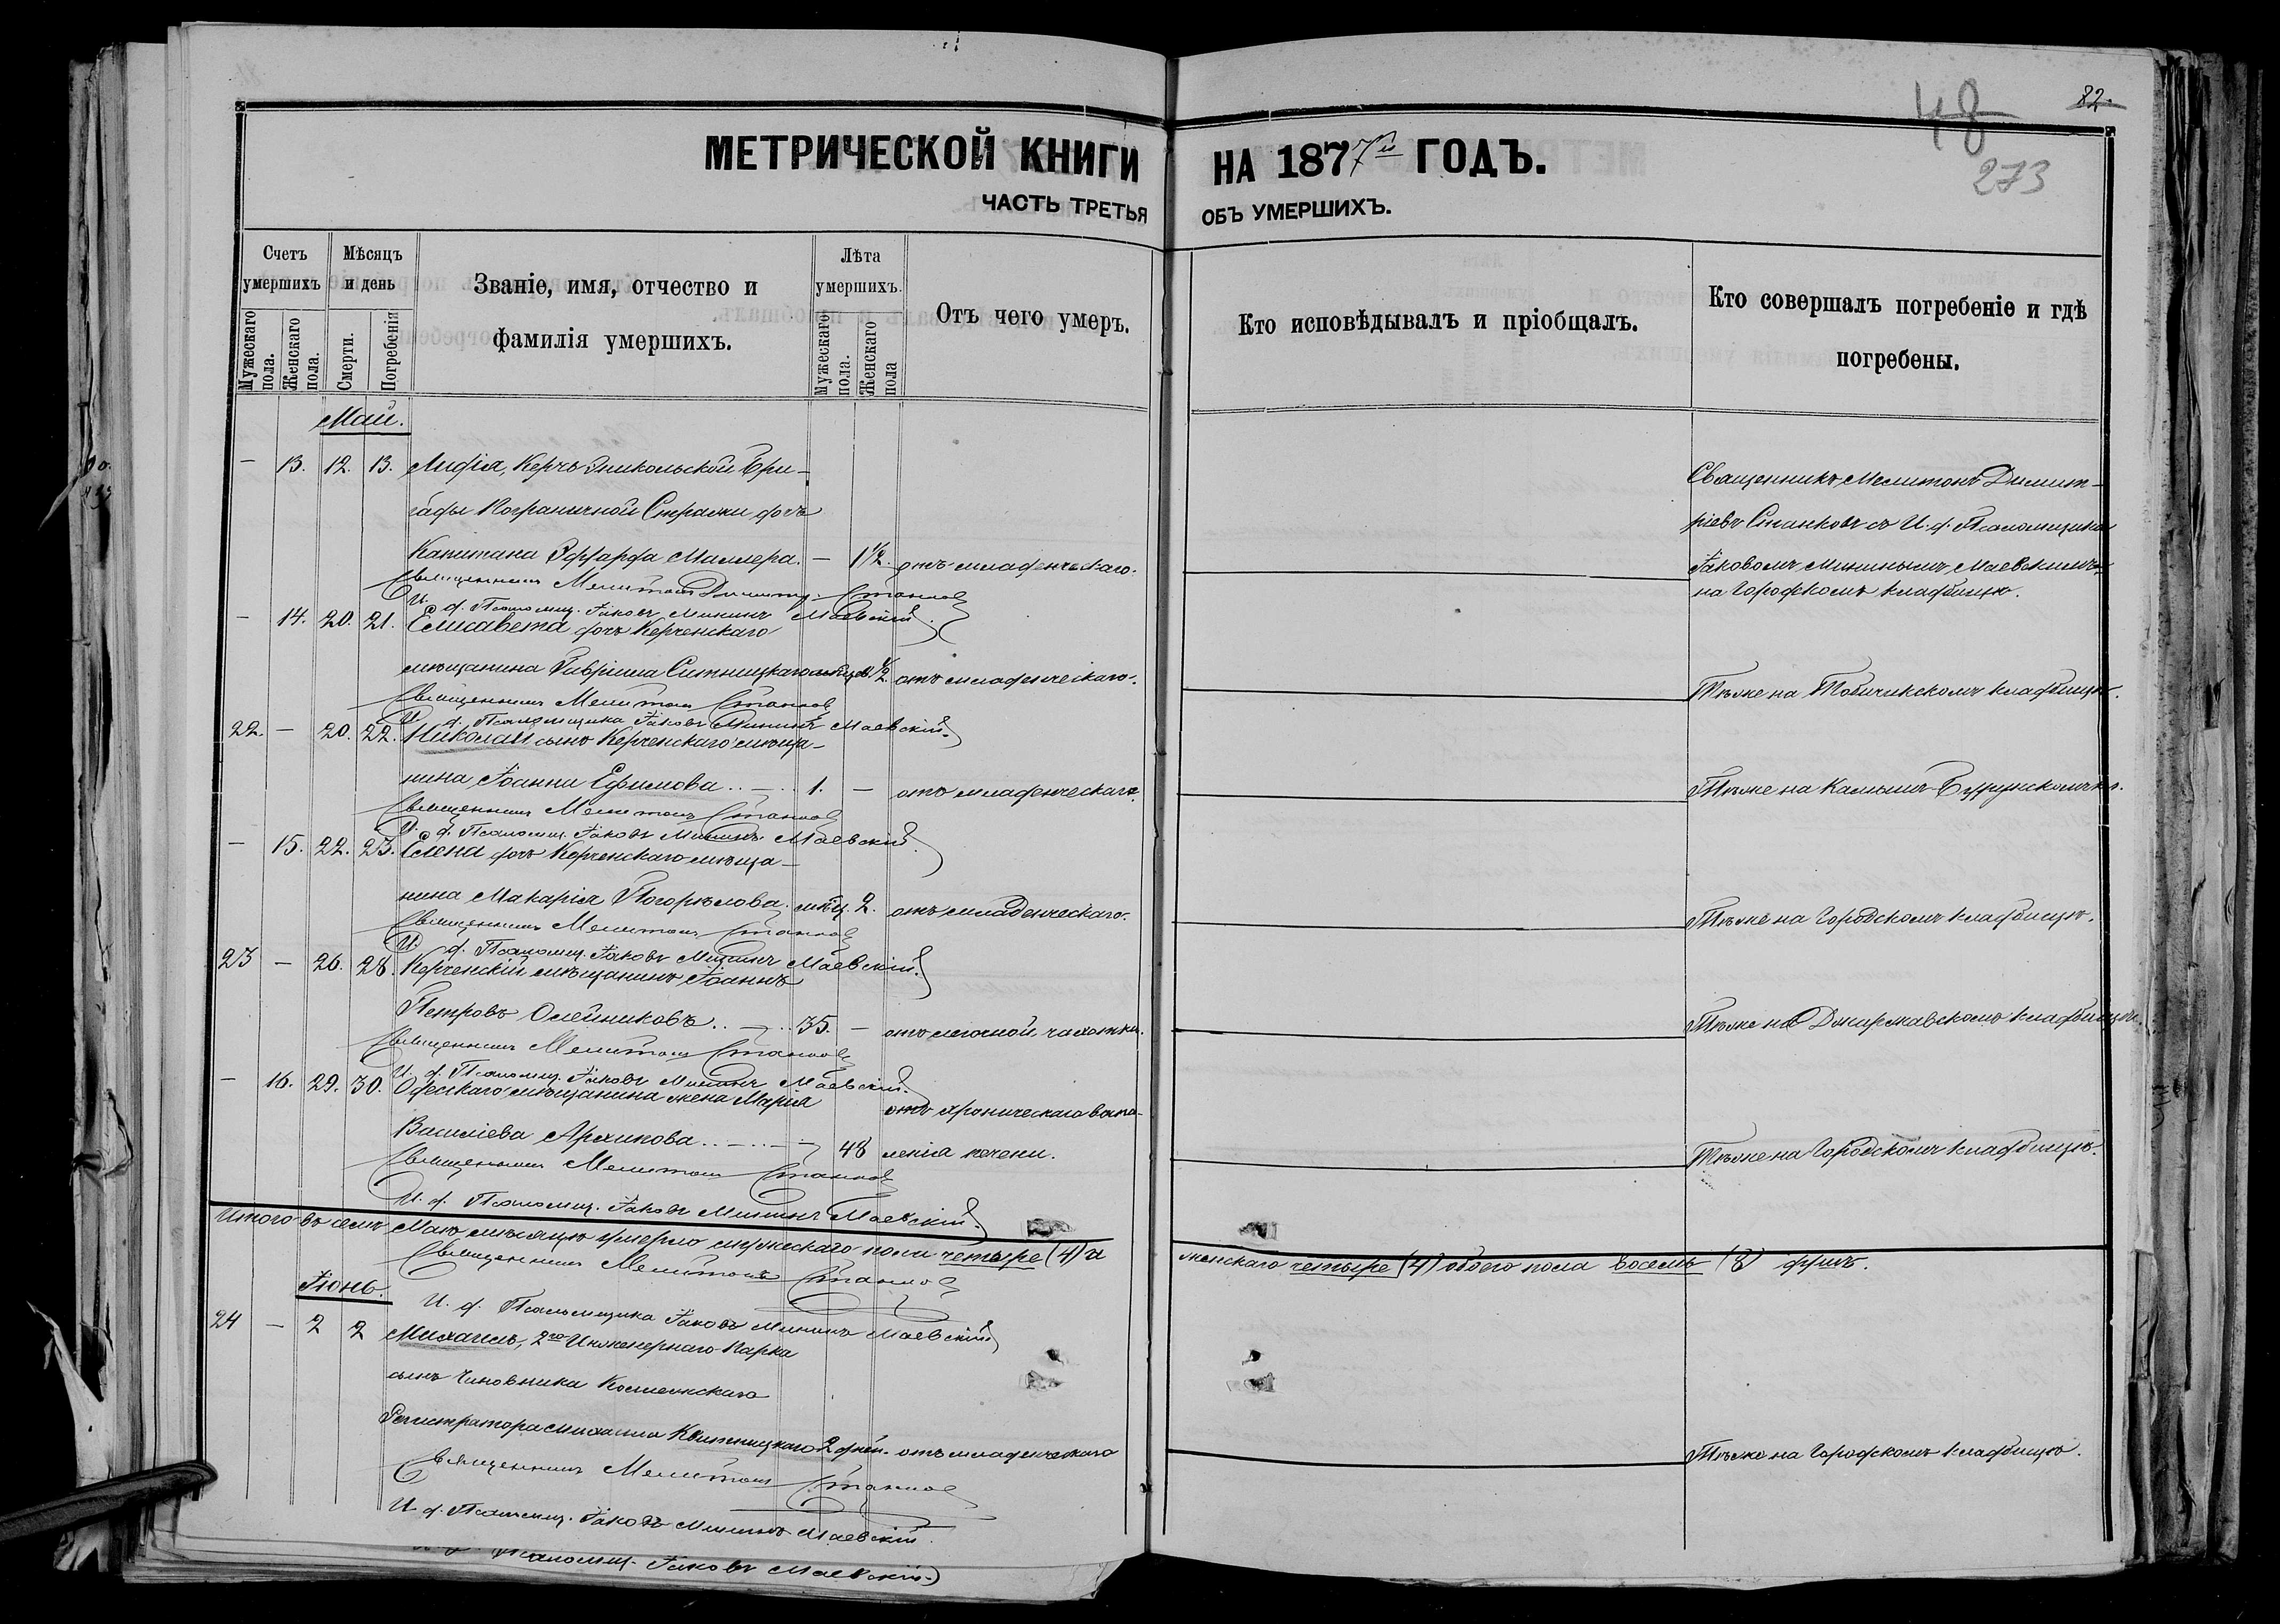 82.
48
273
МЕТРИЧЕСКОЙ КНИГИ НА 1877й ГОДЪ.
ЧАСТЬ ТРЕТЬЯ ОБЪ УМЕРШИХЪ.
Счетъ умершихъ
Мѣсяцъ и день
Званіе, имя, отчество и фамилія умершихъ.
Лѣта умершихъ.
Отъ чего умеръ.
Кто исповѣдывалъ и пріобщалъ.
Кто совершалъ погребеніе и гдѣ погребены.
Мужескаго пола.
Женскаго пола.
Смерти.
Погребенія
Мужескаго пола.
Женскаго пола
Май.
— 13. 12. 13. Лидія, Керчь Эникольской Бри-
гады Пограничной Стражи дочь
Капитана Эдуарда Миллера. — 1 1/2. отъ младенческаго.
Священникъ Мелитонъ Димитр. Станковъ
И. д. Псаломщ. Іаковъ Мининъ Маевскій.
Священникъ Мелитонъ Димит-
ріевъ Станковъ съ И. д. Псаломщика
Іаковомъ Мининымъ Маевскимъ
на Городскомъ кладбищѣ.
— 14. 20. 21. Елисавета дочь Керченскаго
мѣщанина Гавріила Ситницкаго 1/2. отъ младенческаго.
Священникъ Мелитонъ Станковъ
И. д. Псаломщика Іаковъ Мининъ Маевскій.
Тѣже на Тобичикскомъ кладбищѣ.
22. — 20. 22. Николай сынъ Керченскаго мѣща-
нина Іоанна Ефимова .. — .. 1. — отъ младенческаго.
Священникъ Мелитонъ Станковъ
И. д. Псаломщ. Іаковъ Мининъ Маевскій.
Тѣже на Камышъ-Бурунскомъ кл.
— 15. 22. 23. Елена дочь Керченскаго мѣща-
нина Макарія Погорѣлова. мѣц. 2. отъ младенческаго.
Священникъ Мелитонъ Станковъ
И. д. Псаломщ. Іаковъ Мининъ Маевскій.
Тѣже на Городскомъ кладбищѣ.
23 — 26. 28. Керченскій мѣщанинъ Іоаннъ
Петровъ Олейниковъ .. — .. 35. — отъ легочной чахотки.
Священникъ Мелитонъ Станковъ
И. д. Псаломщ. Іаковъ Мининъ Маевскій.
Тѣже на Джаржавскомъ кладбищѣ.
— 16. 29. 30. Одесскаго мѣщанина жена Марія
отъ хроническаго воспа-
Василіева Архипова .. — .. — 48 ленія печени.
Священникъ Мелитонъ Станковъ
И. д. Псаломщ. Іаковъ Мининъ Маевскій.
Тѣже на Городскомъ кладбищѣ.
Итого въ семъ Маѣ мѣсяцѣ умерло мужескаго пола четыре (4) а
женскаго четыре (4) обоего пола восемь (8) душъ.
Священникъ Мелитонъ Станковъ
И. д. Псаломщика Іаковъ Мининъ Маевскій
Іюнь.
24 — 2 2 Михаилъ, 2го Инженернаго Парка
сынъ Чиновника Коллежскаго
Регистратора Михаила Квитницкаго 2 дней. отъ младенческаго
Священникъ Мелитонъ Станковъ
И. д. Псаломщ. Іаковъ Мининъ Маевскій.
Тѣже на Городскомъ кладбищѣ.
Псаломщ. Іаковъ Маевскій